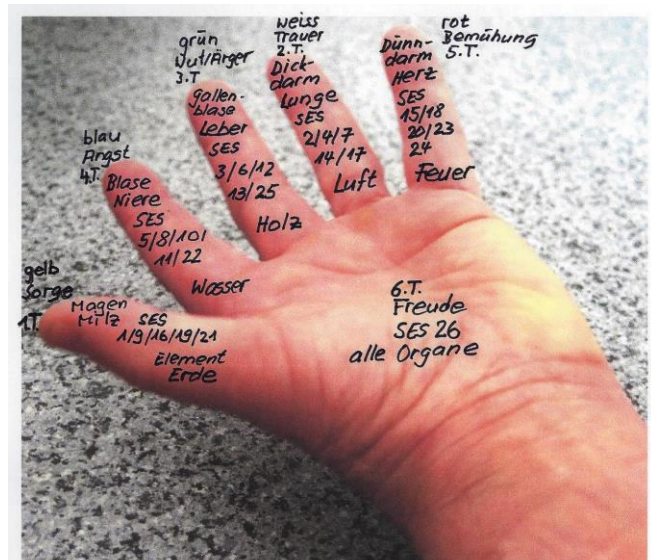 gelb
Sorge
1.T.
Magen
Milz
SES
1/9/16/19/21
Element
Erde
blau
Angst
4.T.
Blase
Niere
SES
5/8/10/
11/22
Wasser
grün
Wut/Ärger
3.T
Gallen-
blase
Leber
SES
3/6/12
13/25
Holz
weiss
Trauer
2.T.
Dick-
darm
Lunge
SES
2/4/7
14/17
Luft
rot
Bemühung
5.T.
Dünn-
darm
Herz
SES
15/18
20/23
24
Feuer
6.T.
Freude
SES 26
alle Organe